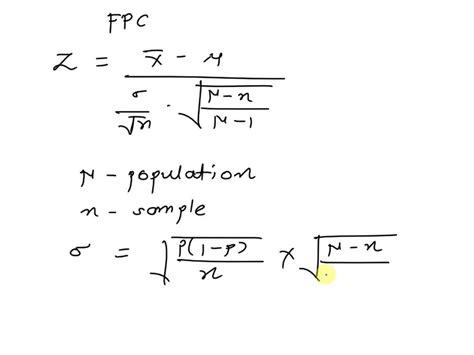 FPC
Z = (x̄ - μ) / (σ/√n · √((N-n)/(N-1)))
N - population
n - sample
σ = √(p(1-p)/n) × √((N-n)/.)